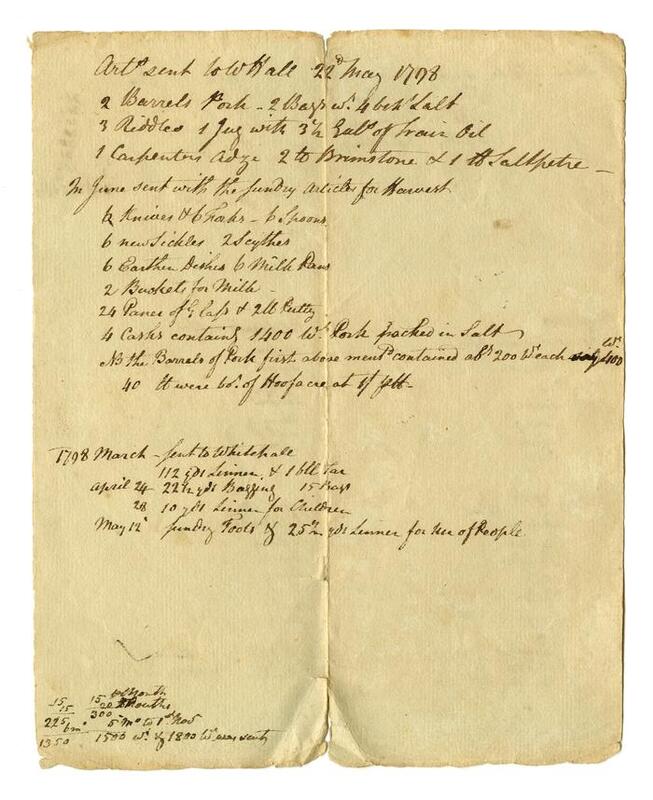 Art.s sent to W Hall 22d May 1798
2 Barrels Pork - 2 Bags wt. 4 bush Salt
3 Riddles 1 Jug with 3½ Gals of Train Oil
1 Carpenters Adze 2 lb Brimstone & 1 lb Saltpetre -
In June sent with the sundry articles for Harvest
Knives & 6 Forks - 6 Spoons
6 new Sickles 2 Scythes
6 Earthen Dishes 6 Milk Pans
2 Buckets for Milk -
24 Panes of Glass & 2 lb Putty
4 Casks containg 1400 Wt. Pork packed in Salt
NB the Barrels of Pork first above mentd contained abt 200 Wt each 400 Wt.
40 lb were bot. of at 1/ -
1798 March - sent to Whitehall
112 yds Linnen & 1 bll Tar
April 24 22½ yds Bagging 15 Bags
28 10 yds Linnen for Children
May 12 sundry Tools & 25½ yds Linnen for use of People
15 15 Month
15 20 Months
225 300 5 Mo to 1st Nov
6 m
1350 1500 wt. & 1800 Wt. was sent